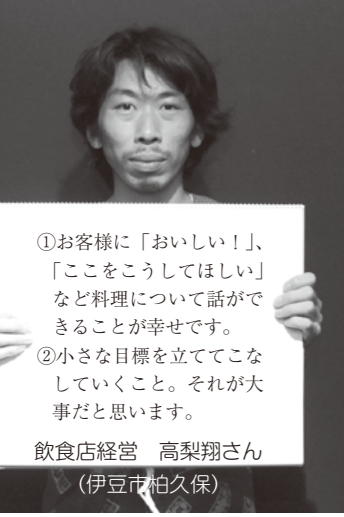 ①お客様に「おいしい！」、
「ここをこうしてほしい」
など料理について話がで
きることが幸せです。
②小さな目標を立ててこな
していくこと。それが大
事だと思います。
飲食店経営　高梨翔さん
（伊豆市柏久保）